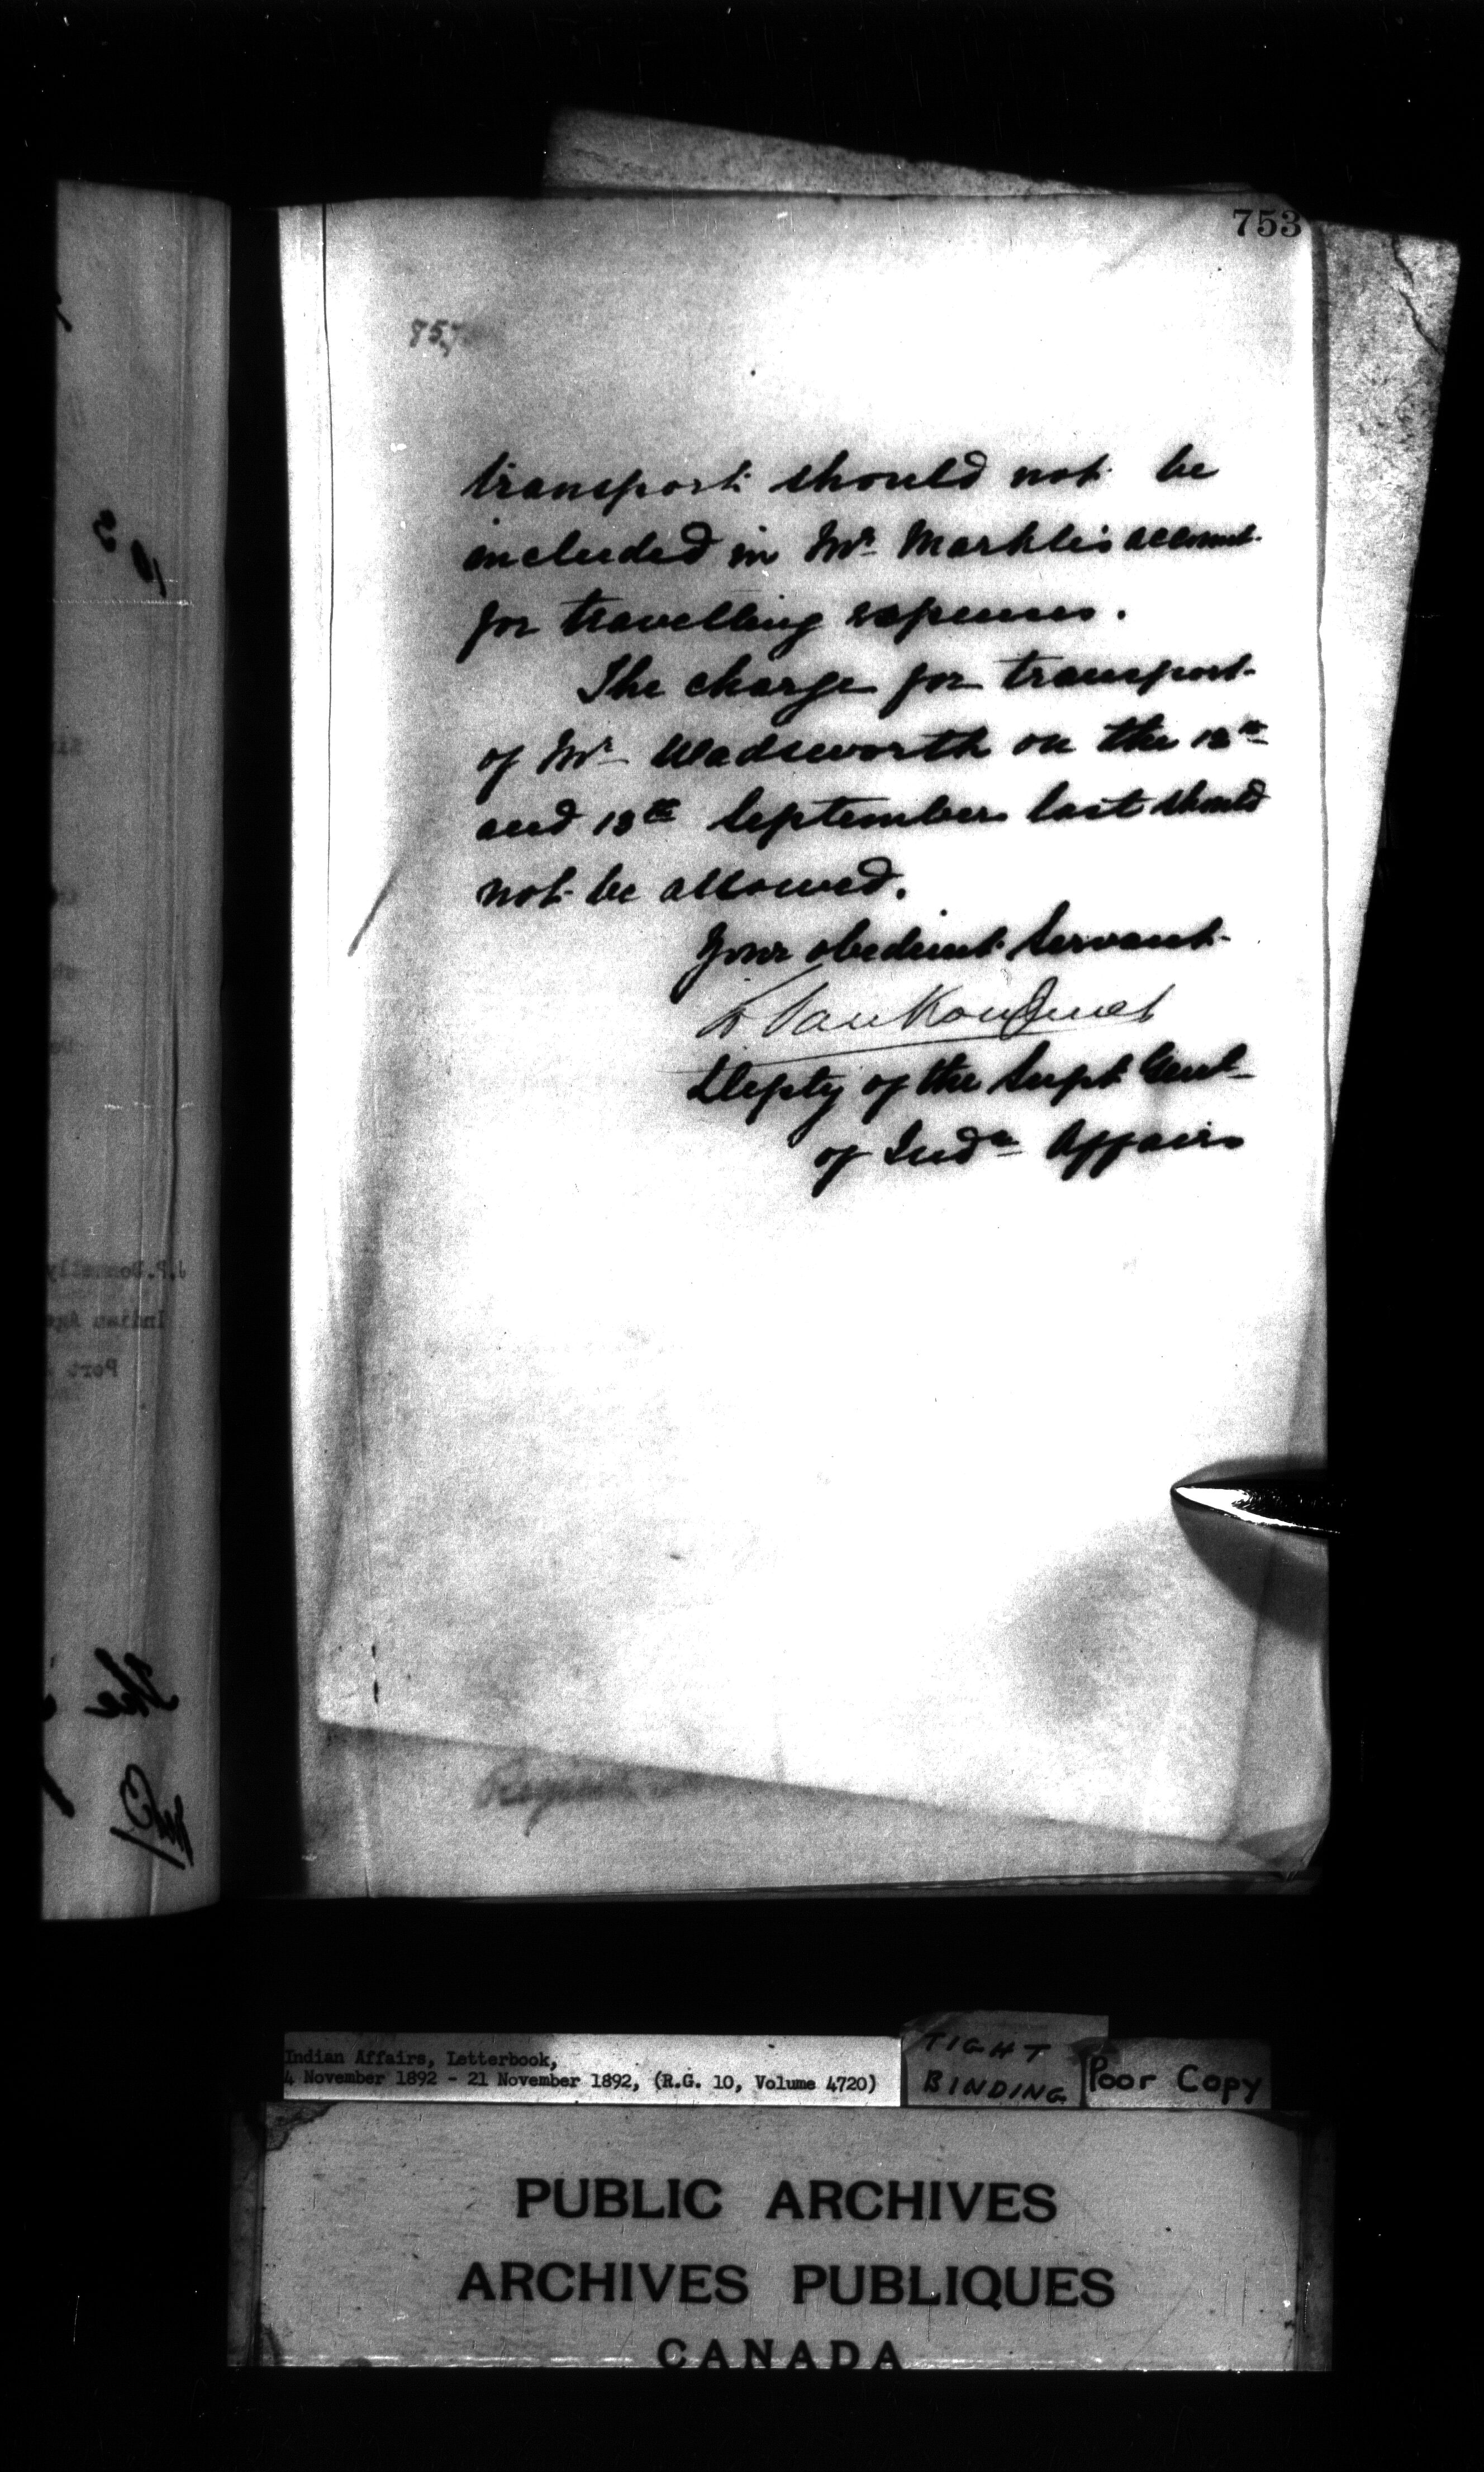 753
transport should not be
included in Mr Markle's account
for travelling expenses.
The charge for transport
of Mr Wadsworth on the 12th
and 13th September last should
not be allowed.
Your obedient Servant
L Vankoughnet
Depty of the Supt Genl
of Indn Affairs
J.P.Donnelly
Indian Age
Port
the
Indian Affairs, Letterbook,
4 November 1892 - 21 November 1892, (R.G. 10, Volume 4720)
TIGHT
BINDING
Poor Copy
PUBLIC ARCHIVES
ARCHIVES PUBLIQUES
CANADA